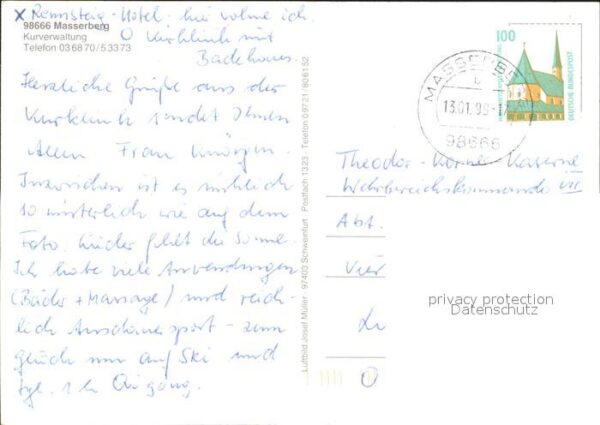 X Rennsteig-Hotel: hier wohne ich.
98666 Masserberg
Kurverwaltung
Telefon 03 68 70 / 5 33 73
O Kurklinik mit
Badehaus.
Herzliche Grüße aus der
Kurklinik sendet Ihnen
allen Frau
Inzwischen ist es wirklich
so winterlich wie auf dem
Foto. Leider fehlt die Sonne.
Ich habe viele Anwendungen
(Bäder + Massage) und reich-
lich Ausdauersport - zum
Glück nun auf Ski und
tgl. 1 h
Luftbild Josef Müller 97403 Schweinfurt Postfach 1323 Telefon 09721 / 806152
100
DEUTSCHE BUNDESPOST
MASSERBERG
b
13.01.98
98666
Theodor-Körner-Kaserne
Wehrbereichskommando VII
Abt.
Vier
L
O
privacy protection
Datenschutz